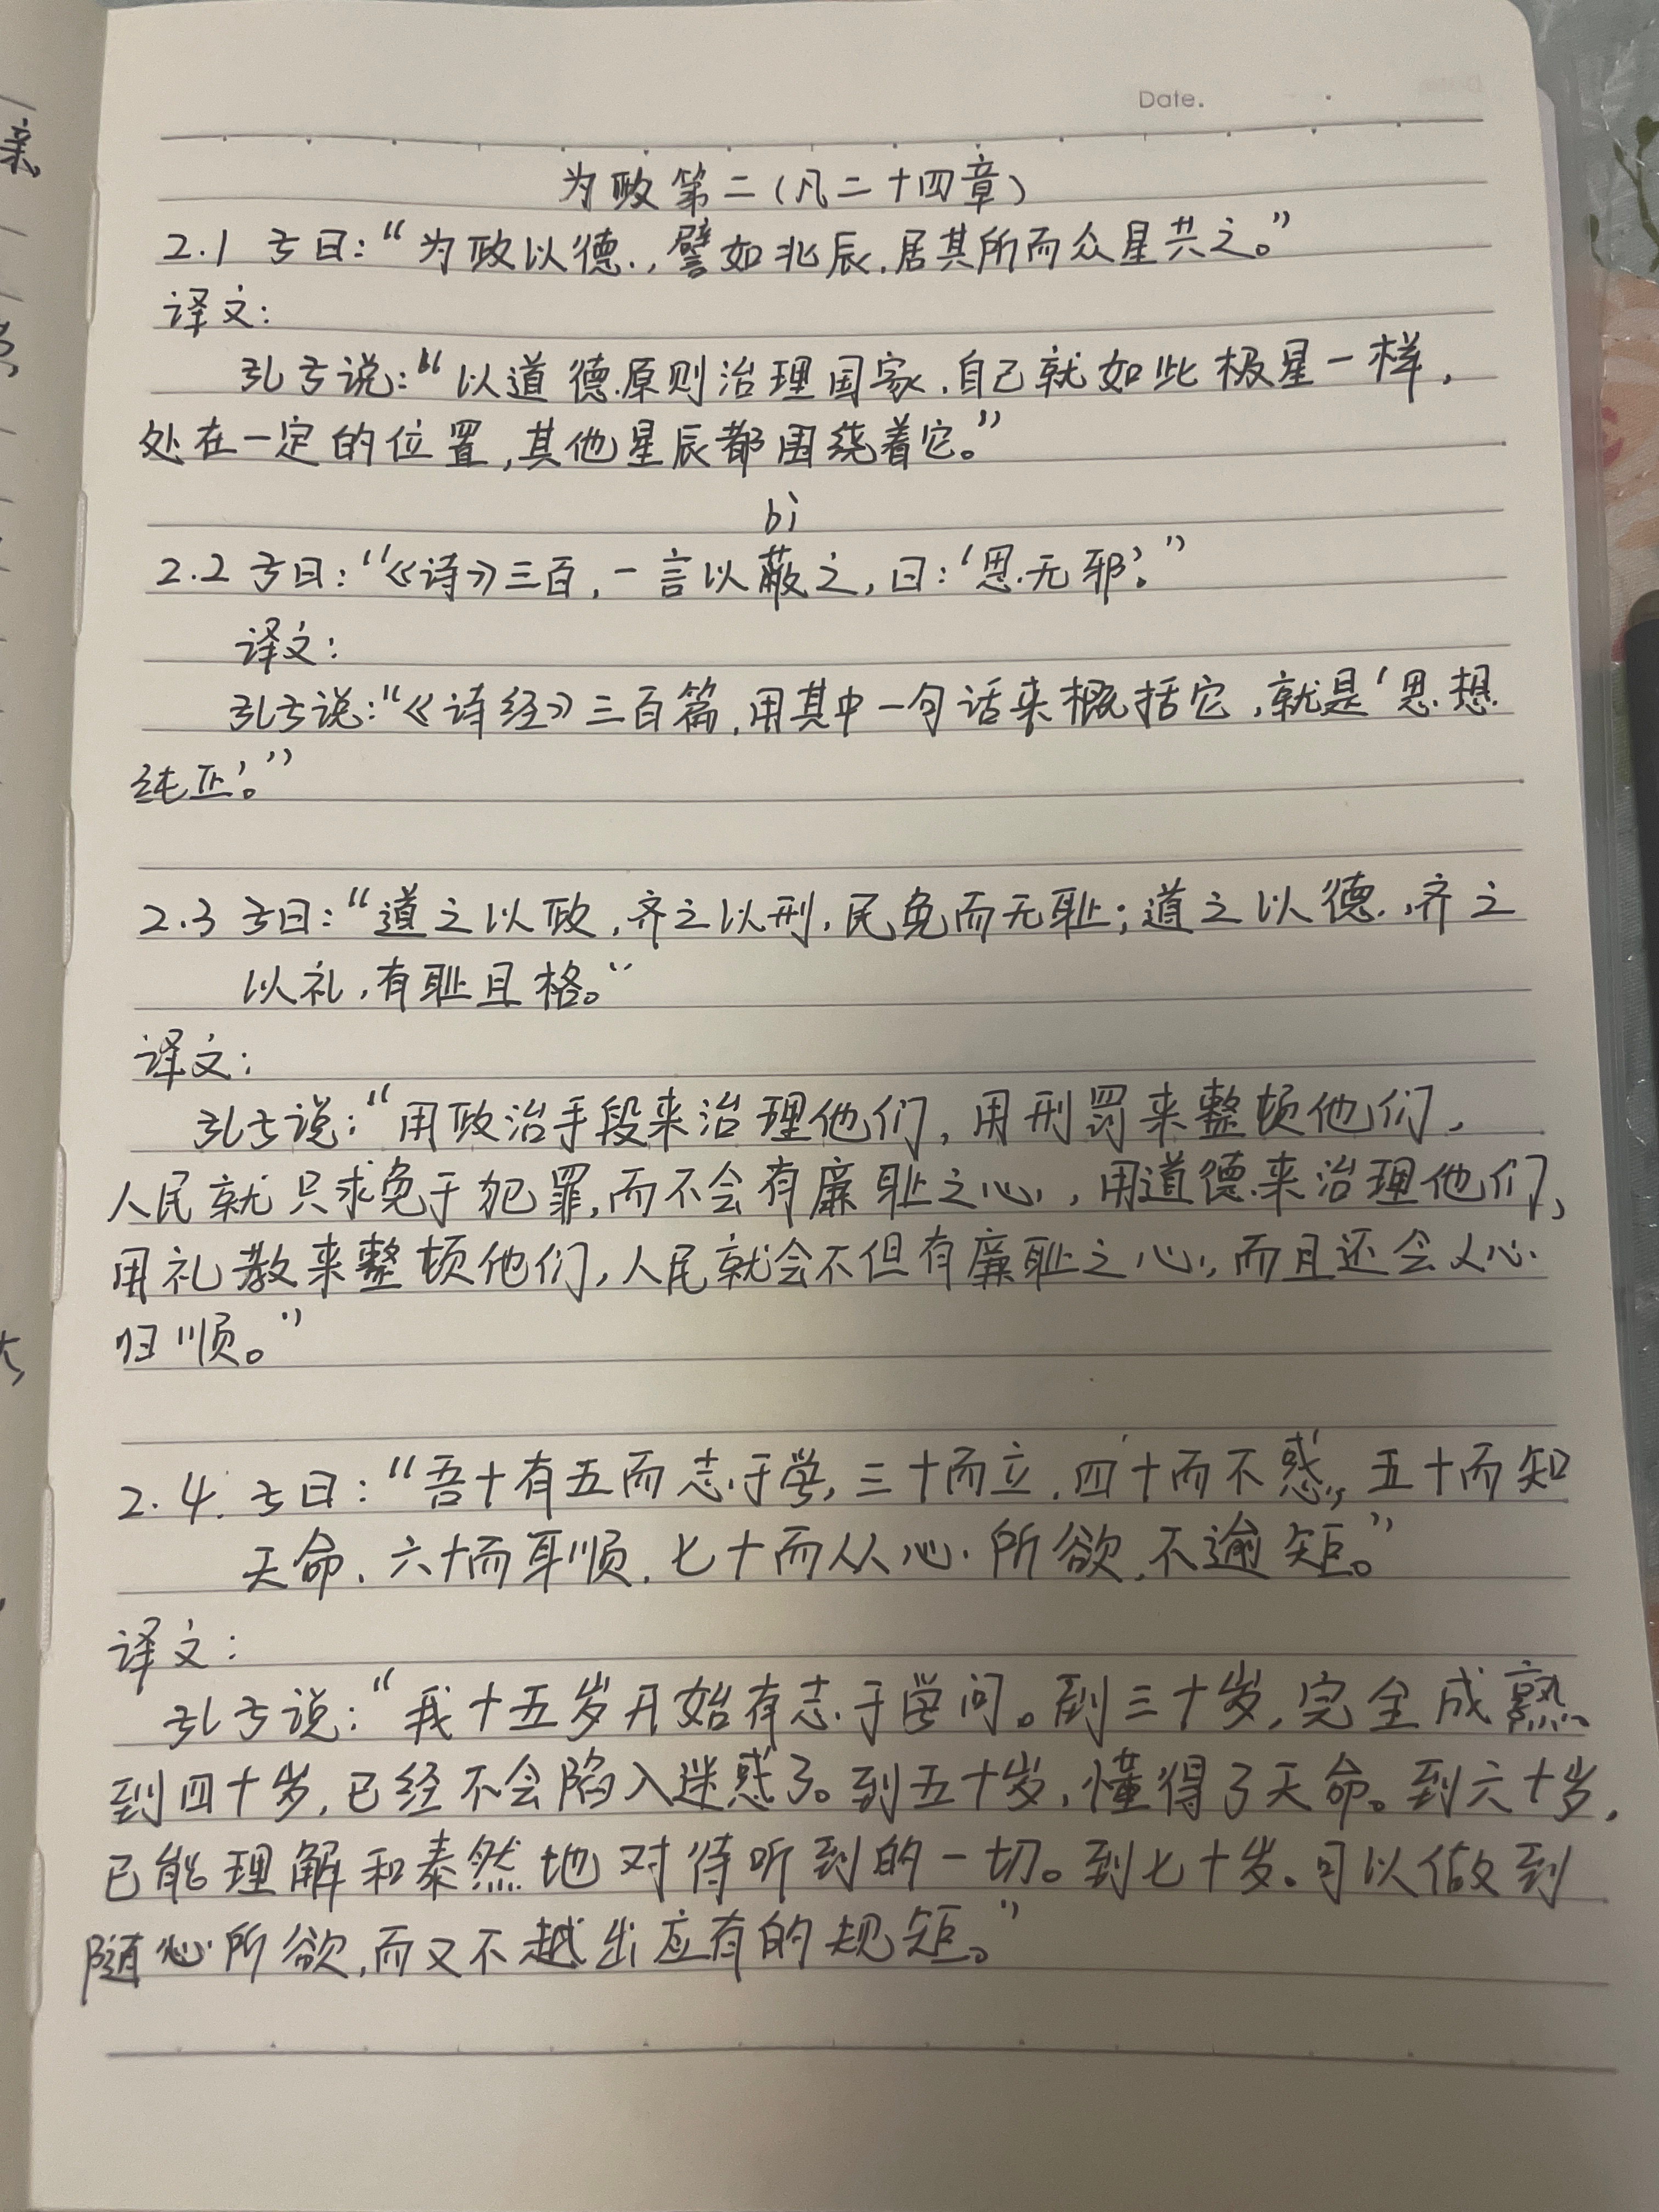 Date.
为政第二(凡二十四章)
2.1 子曰:“为政以德,譬如北辰,居其所而众星共之。”
译文:
孔子说:“以道德原则治理国家,自己就如此极星一样,
处在一定的位置,其他星辰都围绕着它。”
bì
2.2 子曰:“《诗》三百,一言以蔽之,曰:‘思无邪’。”
译文:
孔子说:“《诗经》三百篇,用其中一句话来概括它,就是‘思想
纯正’。”
2.3 子曰:“道之以政,齐之以刑,民免而无耻;道之以德,齐之
以礼,有耻且格。”
译文:
孔子说:“用政治手段来治理他们,用刑罚来整顿他们,
人民就只求免于犯罪,而不会有廉耻之心,用道德来治理他们,
用礼教来整顿他们,人民就会不但有廉耻之心,而且还会人心
归顺。”
2.4. 子曰:“吾十有五而志于学,三十而立,四十而不惑,五十而知
天命,六十而耳顺,七十而从心所欲,不逾矩。”
译文:
孔子说:“我十五岁开始有志于学问。到三十岁,完全成熟。
到四十岁,已经不会陷入迷惑了。到五十岁,懂得了天命。到六十岁,
已能理解和泰然地对待听到的一切。到七十岁。可以做到
随心所欲,而又不越出应有的规矩。”